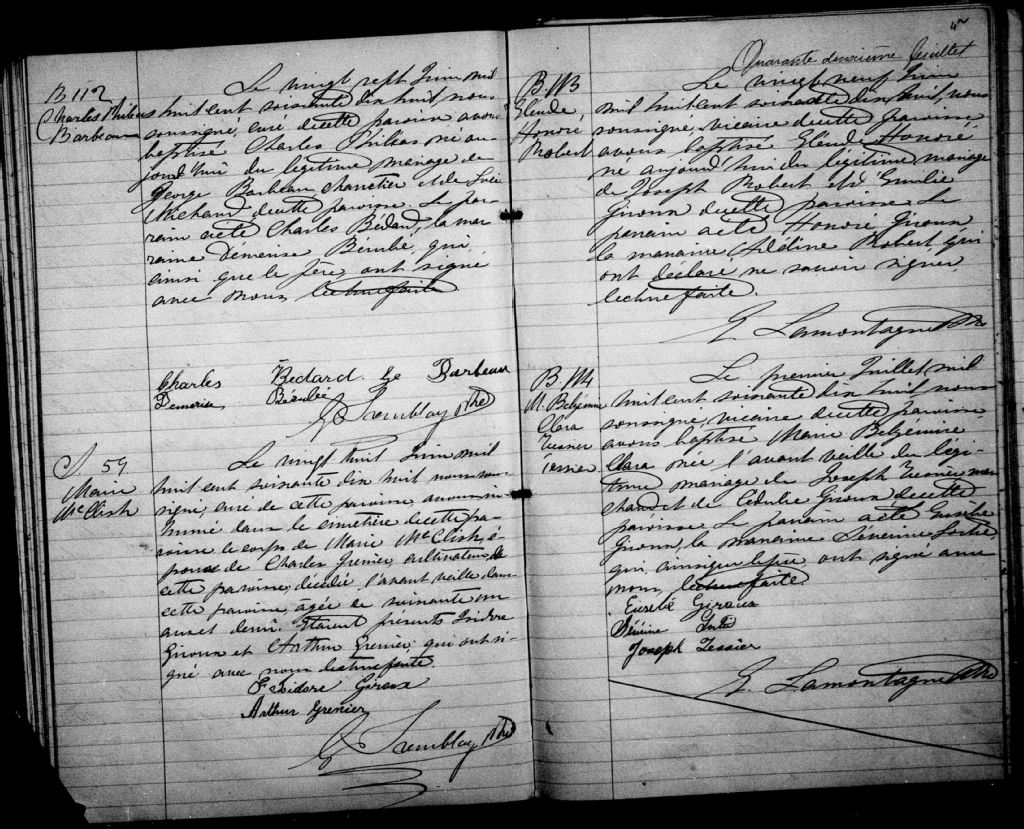 B 112
Charles Phileas
Barbeau
Le vingt sept Juin mil
huit cent soixante dix huit, nous
soussigné, curé de cette paroisse avons
baptisé Charles Phileas né au-
jourd'hui du légitime mariage de
George Barbeau charretier et de Luce
Michaud de cette paroisse. Le par-
rain a été Charles Bédard, la mar-
raine Démerise Bérubé, qui
ainsi que le père ont signé
avec nous lecture faite
Charles Bedard. Ge Barbeau
Demerise Bérubé
G. Tremblay Ptre
S. 54
Marie
McClish
Le vingt huit Juin mil
huit cent soixante dix huit nous sous-
signé, curé de cette paroisse avons in-
humé dans le cimetière de cette pa-
roisse le corps de Marie McClish, é-
pouse de Charles Grenier, cultivateur de
cette paroisse, décédée l'avant veille dans
cette paroisse, agée de soixante un
ans et demi. Etaient présents Isidore
Giroux et Arthur Grenier, qui ont si-
gné avec nous lecture faite.
F. Isidore Giroux
Arthur Grenier
G. Tremblay Ptre
42
Quarante deuxième feuillet
B. 113
Honoré
Robert
Le vingt neuf Juin
mil huit cent soixante dix huit, nous
soussigné, vicaire de cette paroisse
avons baptisé Honoré,
né aujourd'hui du légitime mariage
de Joseph Robert et d'Emilie
Giroux de cette paroisse Le
parrain a été Honoré Giroux
la marraine Adéline Robert, qui
ont déclaré ne savoir signer,
lecture faite.
E. Lamontagne Ptre
B 114
M. Belzémire
Clara
Tessier
Le premier Juillet mil
huit cent soixante dix huit nous
soussigné, vicaire de cette paroisse
avons baptisé Marie Belzémire
Clara née l'avant veille du légi-
time mariage de Joseph Tessier mar-
chand et de Cédulie Giroux de cette
paroisse. Le parrain a été Eusèbe
Giroux, la marraine
qui, ainsi que le père ont signé avec
nous, lecture faite
Eusèbe Giroux
Joseph Tessier
E. Lamontagne Ptre